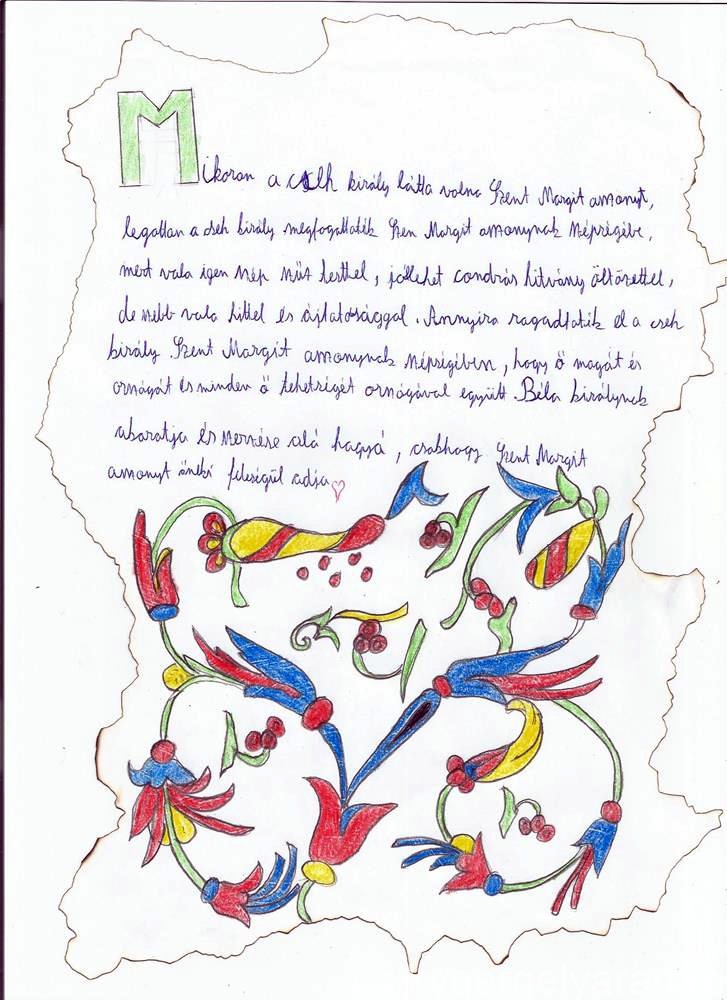 Mikoron a cseh király látta volna Szent Margit asszonyt,
legottan a cseh király megfogattaték Szen Margit asszonynak szépségébe,
mert vala igen szép szűz testtel, jóllehet condrás hitvány öltözettel,
de szebb vala hittel és ájtatossággal. Annyira ragadtaték el a cseh
király Szent Margit asszonynak szépségében, hogy ő magát és
országát és minden ő tehetségét országával együtt Béla királynak
akaratja és szerzése alá hagyá, csakhogy Szent Margit
asszonyt őneki feleségül adja